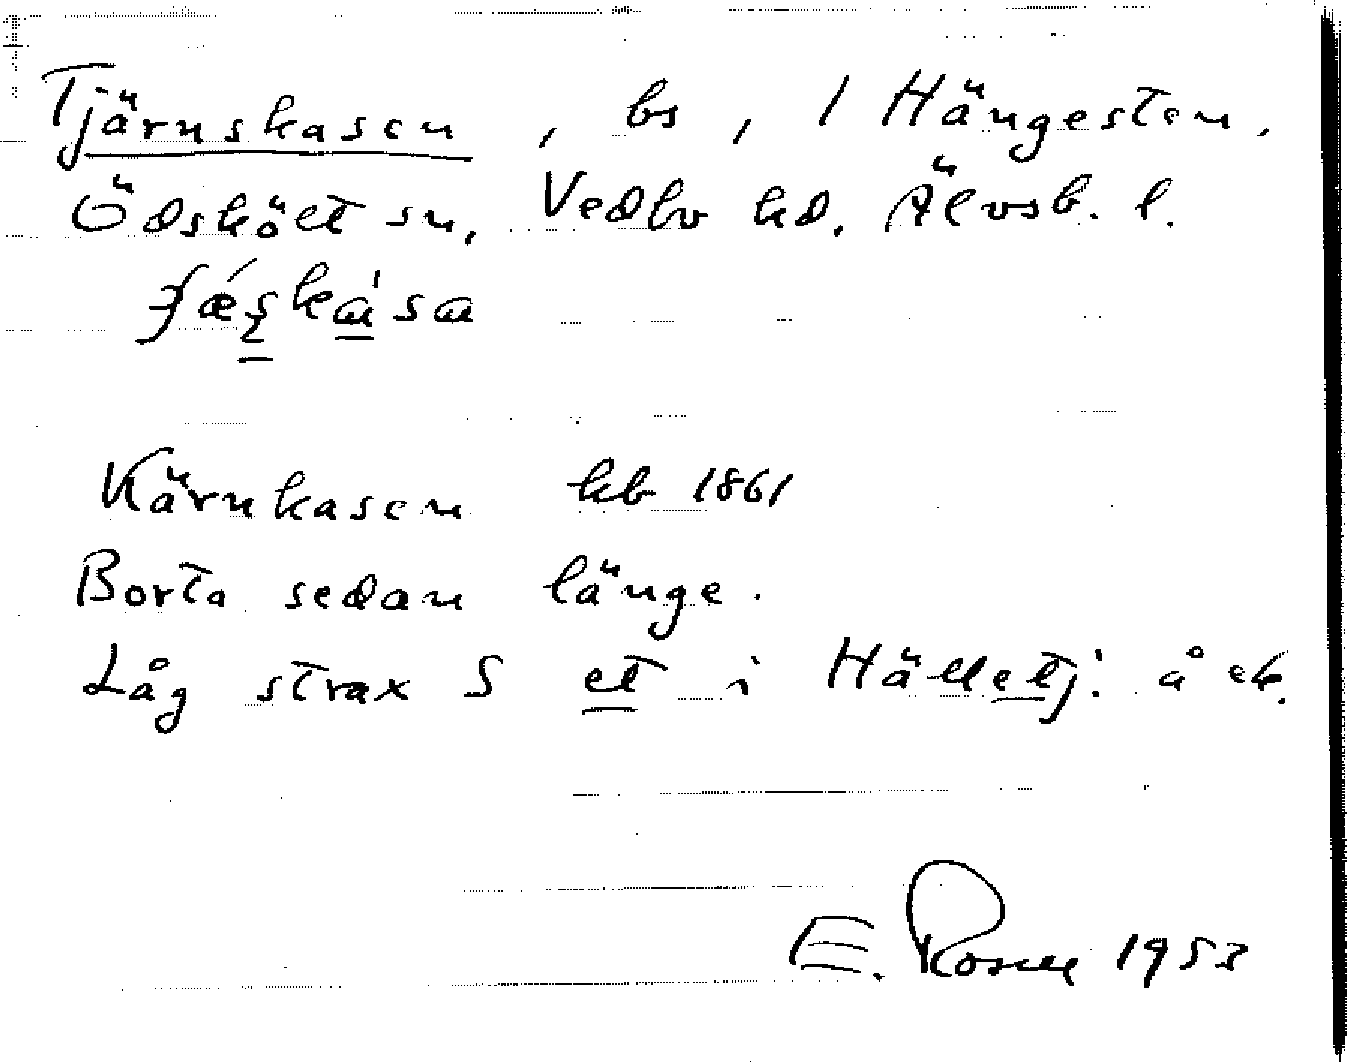 Tjärnskasen, bs, 1 Hängesten,
Ödskölt sn, Vedbo hd, Älvsb. l.
Kärnkasen hb 1861
Borta sedan länge.
Låg strax S et i Hälletj: å ek.
E. Rosell 1953